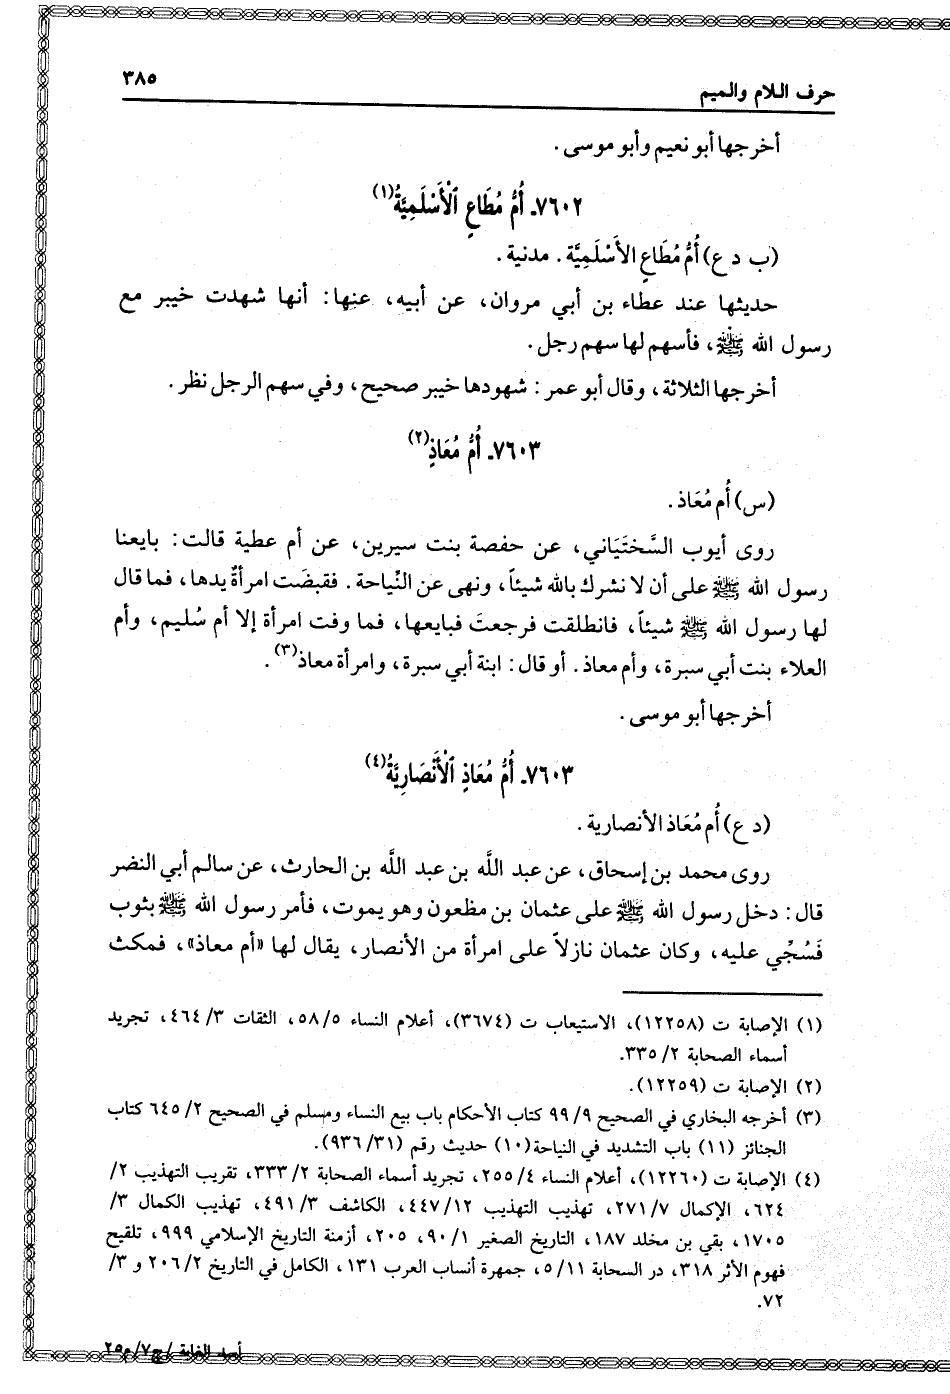 حرف اللام والميم ٣٨٥
أخرجها أبو نعيم وأبو موسى.
٧٦٠٢ـ أُمُّ مُطَاعٍ ٱلْأَسْلَمِيَّةُ(١)
(ب د ع) أُمُّ مُطَاعٍ الأَسْلَمِيَّة. مدنية.
حديثها عند عطاء بن أبي مروان، عن أبيه، عنها: أنها شهدت خيبر مع
رسول الله ﷺ، فأسهم لها سهم رجل.
أخرجها الثلاثة، وقال أبو عمر: شهودها خيبر صحيح، وفي سهم الرجل نظر.
٧٦٠٣ـ أُمُّ مُعَاذٍ(٢)
(س) أُم مُعَاذ.
روى أيوب السَّختَيَاني، عن حفصة بنت سيرين، عن أم عطية قالت: بايعنا
رسول الله ﷺ على أن لا نشرك بالله شيئاً، ونهى عن النِّياحة. فقبضَت امرأةٌ يدها، فما قال
لها رسول الله ﷺ شيئاً، فانطلقت فرجعتَ فبايعها، فما وفت امرأة إلا أم سُليم، وأم
العلاء بنت أبي سبرة، وأم معاذ. أو قال: ابنة أبي سبرة، وامرأة معاذ(٣).
أخرجها أبو موسى.
٧٦٠٣ـ أُمُّ مُعَاذٍ ٱلْأَنْصَارِيَّةُ(٤)
(د ع) أُم مُعَاذ الأنصارية.
روى محمد بن إسحاق، عن عبد اللَّه بن عبد اللَّه بن الحارث، عن سالم أبي النضر
قال: دخل رسول الله ﷺ على عثمان بن مظعون وهو يموت، فأمر رسول الله ﷺ بثوب
فَسُجِّي عليه، وكان عثمان نازلاً على امرأة من الأنصار، يقال لها «أم معاذ»، فمكث
(١) الإصابة ت (١٢٢٥٨)، الاستيعاب ت (٣٦٧٤)، أعلام النساء ٥/ ٥٨، الثقات ٣/ ٤٦٤، تجريد
أسماء الصحابة ٢/ ٣٣٥.
(٢) الإصابة ت (١٢٢٥٩).
(٣) أخرجه البخاري في الصحيح ٩/ ٩٩ كتاب الأحكام باب بيع النساء ومسلم في الصحيح ٢/ ٦٤٥ كتاب
الجنائز (١١) باب التشديد في النياحة (١٠) حديث رقم (٣١/ ٩٣٦).
(٤) الإصابة ت (١٢٢٦٠)، أعلام النساء ٤/ ٢٥٥، تجريد أسماء الصحابة ٢/ ٣٣٣، تقريب التهذيب ٢/
٦٢٤، الإكمال ٧/ ٢٧١، تهذيب التهذيب ١٢/ ٤٤٧، الكاشف ٣/ ٤٩١، تهذيب الكمال ٣/
١٧٠٥، بقي بن مخلد ١٨٧، التاريخ الصغير ١/ ٩٠، ٢٠٥، أزمنة التاريخ الإسلامي ٩٩٩، تلقيح
فهوم الأثر ٣١٨، در السحابة ١١/ ٥، جمهرة أنساب العرب ١٣١، الكامل في التاريخ ٢/ ٢٠٦ و ٣/
٧٢.
أسد الغابة /ج٧/ م٢٥